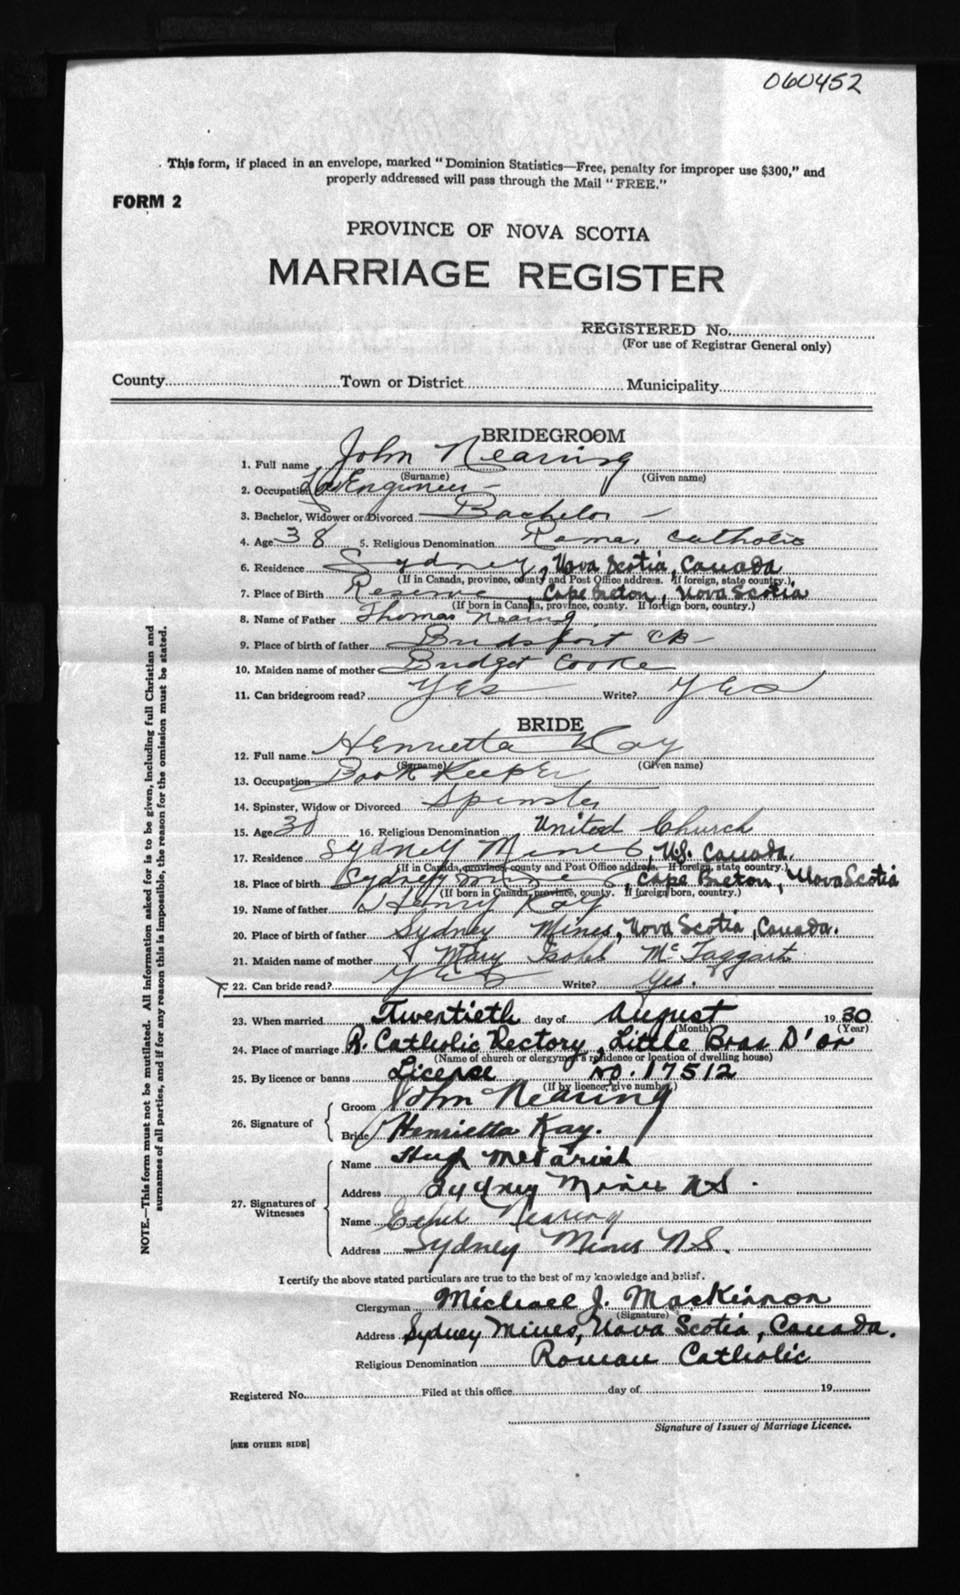 060452
This form, if placed in an envelope, marked "Dominion Statistics—Free, penalty for improper use $300," and
properly addressed will pass through the Mail "FREE."
FORM 2
PROVINCE OF NOVA SCOTIA
MARRIAGE REGISTER
REGISTERED No.
(For use of Registrar General only)
County Town or District Municipality
BRIDEGROOM
1. Full name John Nearing
(Surname) (Given name)
2. Occupation Engineer
3. Bachelor, Widower or Divorced Bachelor
4. Age 38 5. Religious Denomination Roman Catholic
6. Residence Sydney, Nova Scotia, Canada
(If in Canada, province, county and Post Office address. If foreign, state country.)
7. Place of Birth Reserve, Cape Breton, Nova Scotia
(If born in Canada, province, county. If foreign born, country.)
8. Name of Father Thomas Nearing
9. Place of birth of father Bridsport CB
10. Maiden name of mother Bridget Cooke
11. Can bridegroom read? Yes Write? Yes
BRIDE
12. Full name Henrietta Kay
(Surname) (Given name)
13. Occupation Book Keeper
14. Spinster, Widow or Divorced Spinster
15. Age 30 16. Religious Denomination United Church
17. Residence Sydney Mines, N.S. Canada.
(If in Canada, province, county and Post Office address. If foreign, state country.)
18. Place of birth Sydney Mines, Cape Breton, Nova Scotia
(If born in Canada, province, county. If foreign born, country.)
19. Name of father Henry Kay
20. Place of birth of father Sydney Mines, Nova Scotia, Canada.
21. Maiden name of mother Mary Isobel McTaggart
22. Can bride read? Yes Write? Yes.
23. When married Twentieth day of August 1930
(Month) (Year)
24. Place of marriage R. Catholic Rectory, Little Bras D'or
(Name of church or clergyman's residence or location of dwelling house)
25. By licence or banns License No. 17512
(If by licence, give number)
26. Signature of
Groom John Nearing
Bride Henrietta Kay.
27. Signatures of Witnesses
Name Hugh
Address Sydney Mines NS.
Name Ethel Nearing
Address Sydney Mines N.S.
I certify the above stated particulars are true to the best of my knowledge and belief.
Clergyman Michael J. MacKinnon
(Signature)
Address Sydney Mines, Nova Scotia, Canada.
Religious Denomination Roman Catholic
Registered No. Filed at this office day of 19
Signature of Issuer of Marriage Licence.
[SEE OTHER SIDE]
NOTE.—This form must not be mutilated. All information asked for is to be given, including full Christian and
surnames of all parties, and if for any reason this is impossible, the reason for the omission must be stated.